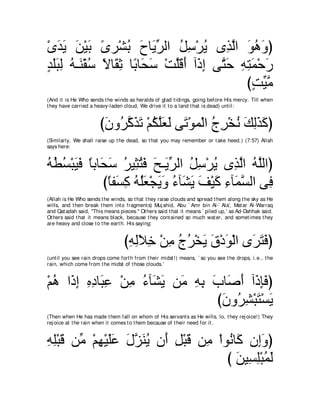 (وَهُوَ الَّذِي يُرْسِلُ الرِّيَاحَ بُشْرًى بَيْنَ يَدَىْ
رَحْمَتِهِ حَتَّى إِذَآ أَقَلَّتْ سَحَابًا ثِقَالاً سُقْنَـهُ لِبَلَدٍ
مَّيِّتٍ)
(And it is He Who sends the winds as heralds of glad tidings, going before His mercy. Till when
they have carried a heavy-laden cloud, We drive it to a land that is dead) until:
(كَذَلِكَ نُخْرِجُ الْموْتَى لَعَلَّكُمْ تَذَكَّرُونَ)
(Similarly, We shall raise up the dead, so that you may remember or take heed.) (7:57) Allah
says here:
(اللَّهُ الَّذِي يُرْسِلُ الرِّيَـحَ فَتُثِيرُ سَحَاباً فَيَبْسُطُهُ
فِى السَّمَآءِ كَيْفَ يَشَآءُ وَيَجْعَلُهُ كِسَفاً)
(Allah is He Who sends the winds, so that they raise clouds and spread them along the sky as He
wills, and then break them into fragments) Mujahid, Abu `Amr bin Al-`Ala', Matar Al-Warraq
and Qatadah said, "This means pieces." Others said that it means `piled up,' as Ad-Dahhak said.
Others said that it means black, because they contained so much water, and sometimes they
are heavy and close to the earth. His saying:
(فَتَرَى الْوَدْقَ يَخْرُجُ مِنْ خِلاَلِهِ)
(until you see rain drops come forth from their midst!) means, `so you see the drops, i.e., the
rain, which come from the midst of those clouds.'
(فَإِذَآ أَصَابَ بِهِ مَن يَشَآءُ مِنْ عِبَادِهِ إِذَا هُمْ
يَسْتَبْشِرُونَ)
(Then when He has made them fall on whom of His servants as He wills, lo, they rejoice!) They
rejoice at the rain when it comes to them because of their need for it.
(وَإِن كَانُواْ مِن قَبْلِ أَن يُنَزَّلَ عَلَيْهِمْ مِّن قَبْلِهِ
لَمُبْلِسِينَ )